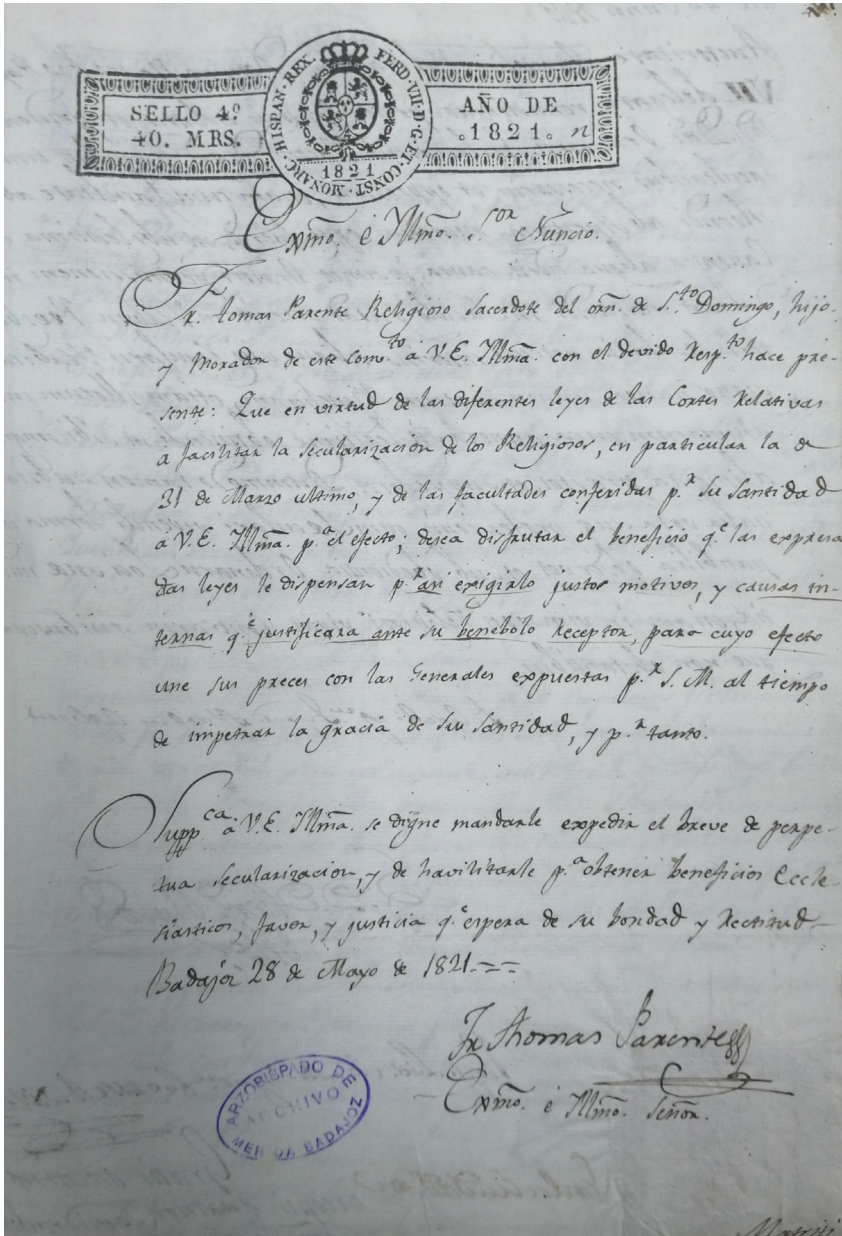 HISPAN·REX. FERD·VII·D·G·ET·CONST·MONARC·
SELLO 4º
40. MRS.
AÑO DE
1821.
1821
Exmõ. é Yllmõ. S.or Nuncio.
Fr. tomas Parente Religioso Sacerdote del orñ. de S.to Domingo, hijo,
y Morador de este Conv.to á V.E. Yllmã. con el devido Resp.to hace pre-
sente: Que en virtud de las diferentes leyes de las Cortes Relativas
á facilitar la secularizacion de los Religiosos, en particular la de
31 de Marzo ultimo, y de las facultades conferidas p.r Su Santidad
á V.E. Yllmã. p.a el efecto; desea disfrutar el beneficio q.e las expresa
das leyes le dispensan p.r asi exigirlo justos motivos, y causas in-
ternas q.e justificará ante su benebolo Receptor, para cuyo efecto
une sus preces con las Generales expuestas p.r S. M. al tiempo
de impetrar la gracia de Su Santidad, y p.r tanto.
Supp.ca á V.E. Yllmã. se digne mandarle expedir el breve de perpe-
tua secularizacion, y de havilitarle p.a obtener beneficios Eccle-
siasticos, favor, y justicia q.e espera de su bondad y Rectitud
Badajóz 28 de Mayo de 1821.==
Fr. Thomas Parente
Exmõ. é Yllmõ. Señor.
ARZOBISPADO DE
ARCHIVO
MERIDA BADAJOZ